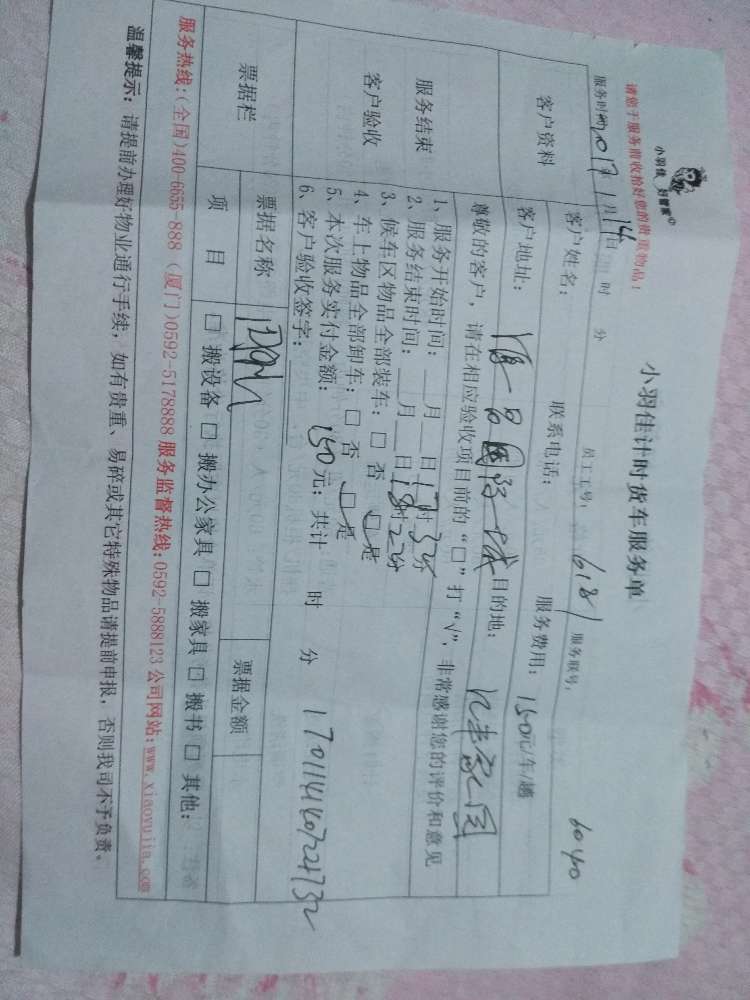 小羽佳 好管家
小羽佳计时货车服务单
请您于服务前收拾好您的贵重物品!
服务时间2017 1月14日 时 分 员工工号: 6181 服务联号: 6040
客户资料
客户姓名: 联系电话: 服务费用: 150元/车/趟
客户地址: 目的地:
尊敬的客户,请在相应验收项目前的“□”打“√”,非常感谢您的评价和意见
服务结束
客户验收
1、服务开始时间: 月 日17时32分
2、服务结束时间: 月 日18时22分
3、候车区物品全部装车: □ 否 □是
4、车上物品全部卸车: □ 否 □是
5、本次服务实付金额: 150元; 共计 时 分
6、客户验收签字: 170114140724732
票据栏 票据名称 票据金额
项 目 □ 搬设备 □ 搬办公家具 □ 搬家具 □ 搬书 □ 其他:
服务热线:(全国)400-6655-888 (厦门)0592-5178888 服务监督热线:0592-5888123 公司网站:www.xiaoyujia.com
温馨提示: 请提前办理好物业通行手续, 如有贵重、易碎或其它特殊物品请提前申报, 否则我司不予负责。